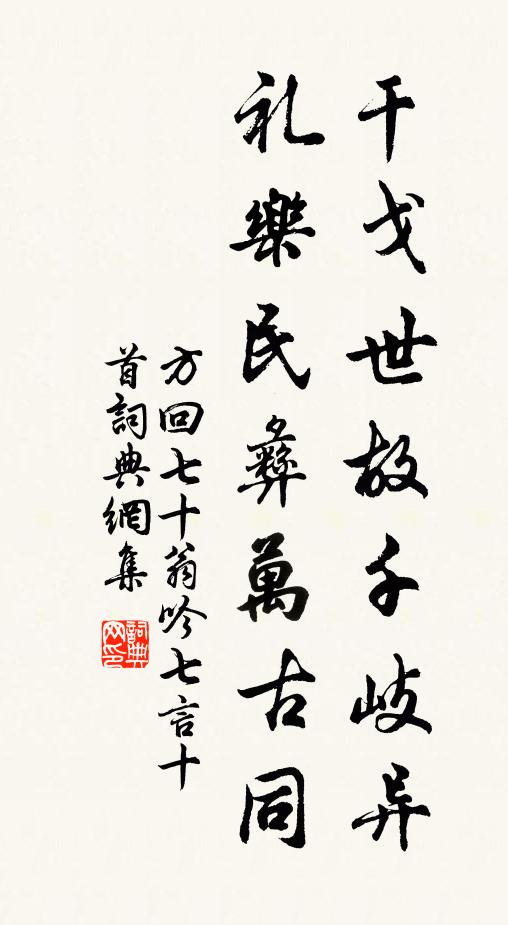 干戈世故千岐异
礼樂民彝萬古同
方回七十翁吟七言十
首詞典網集
詞典网印